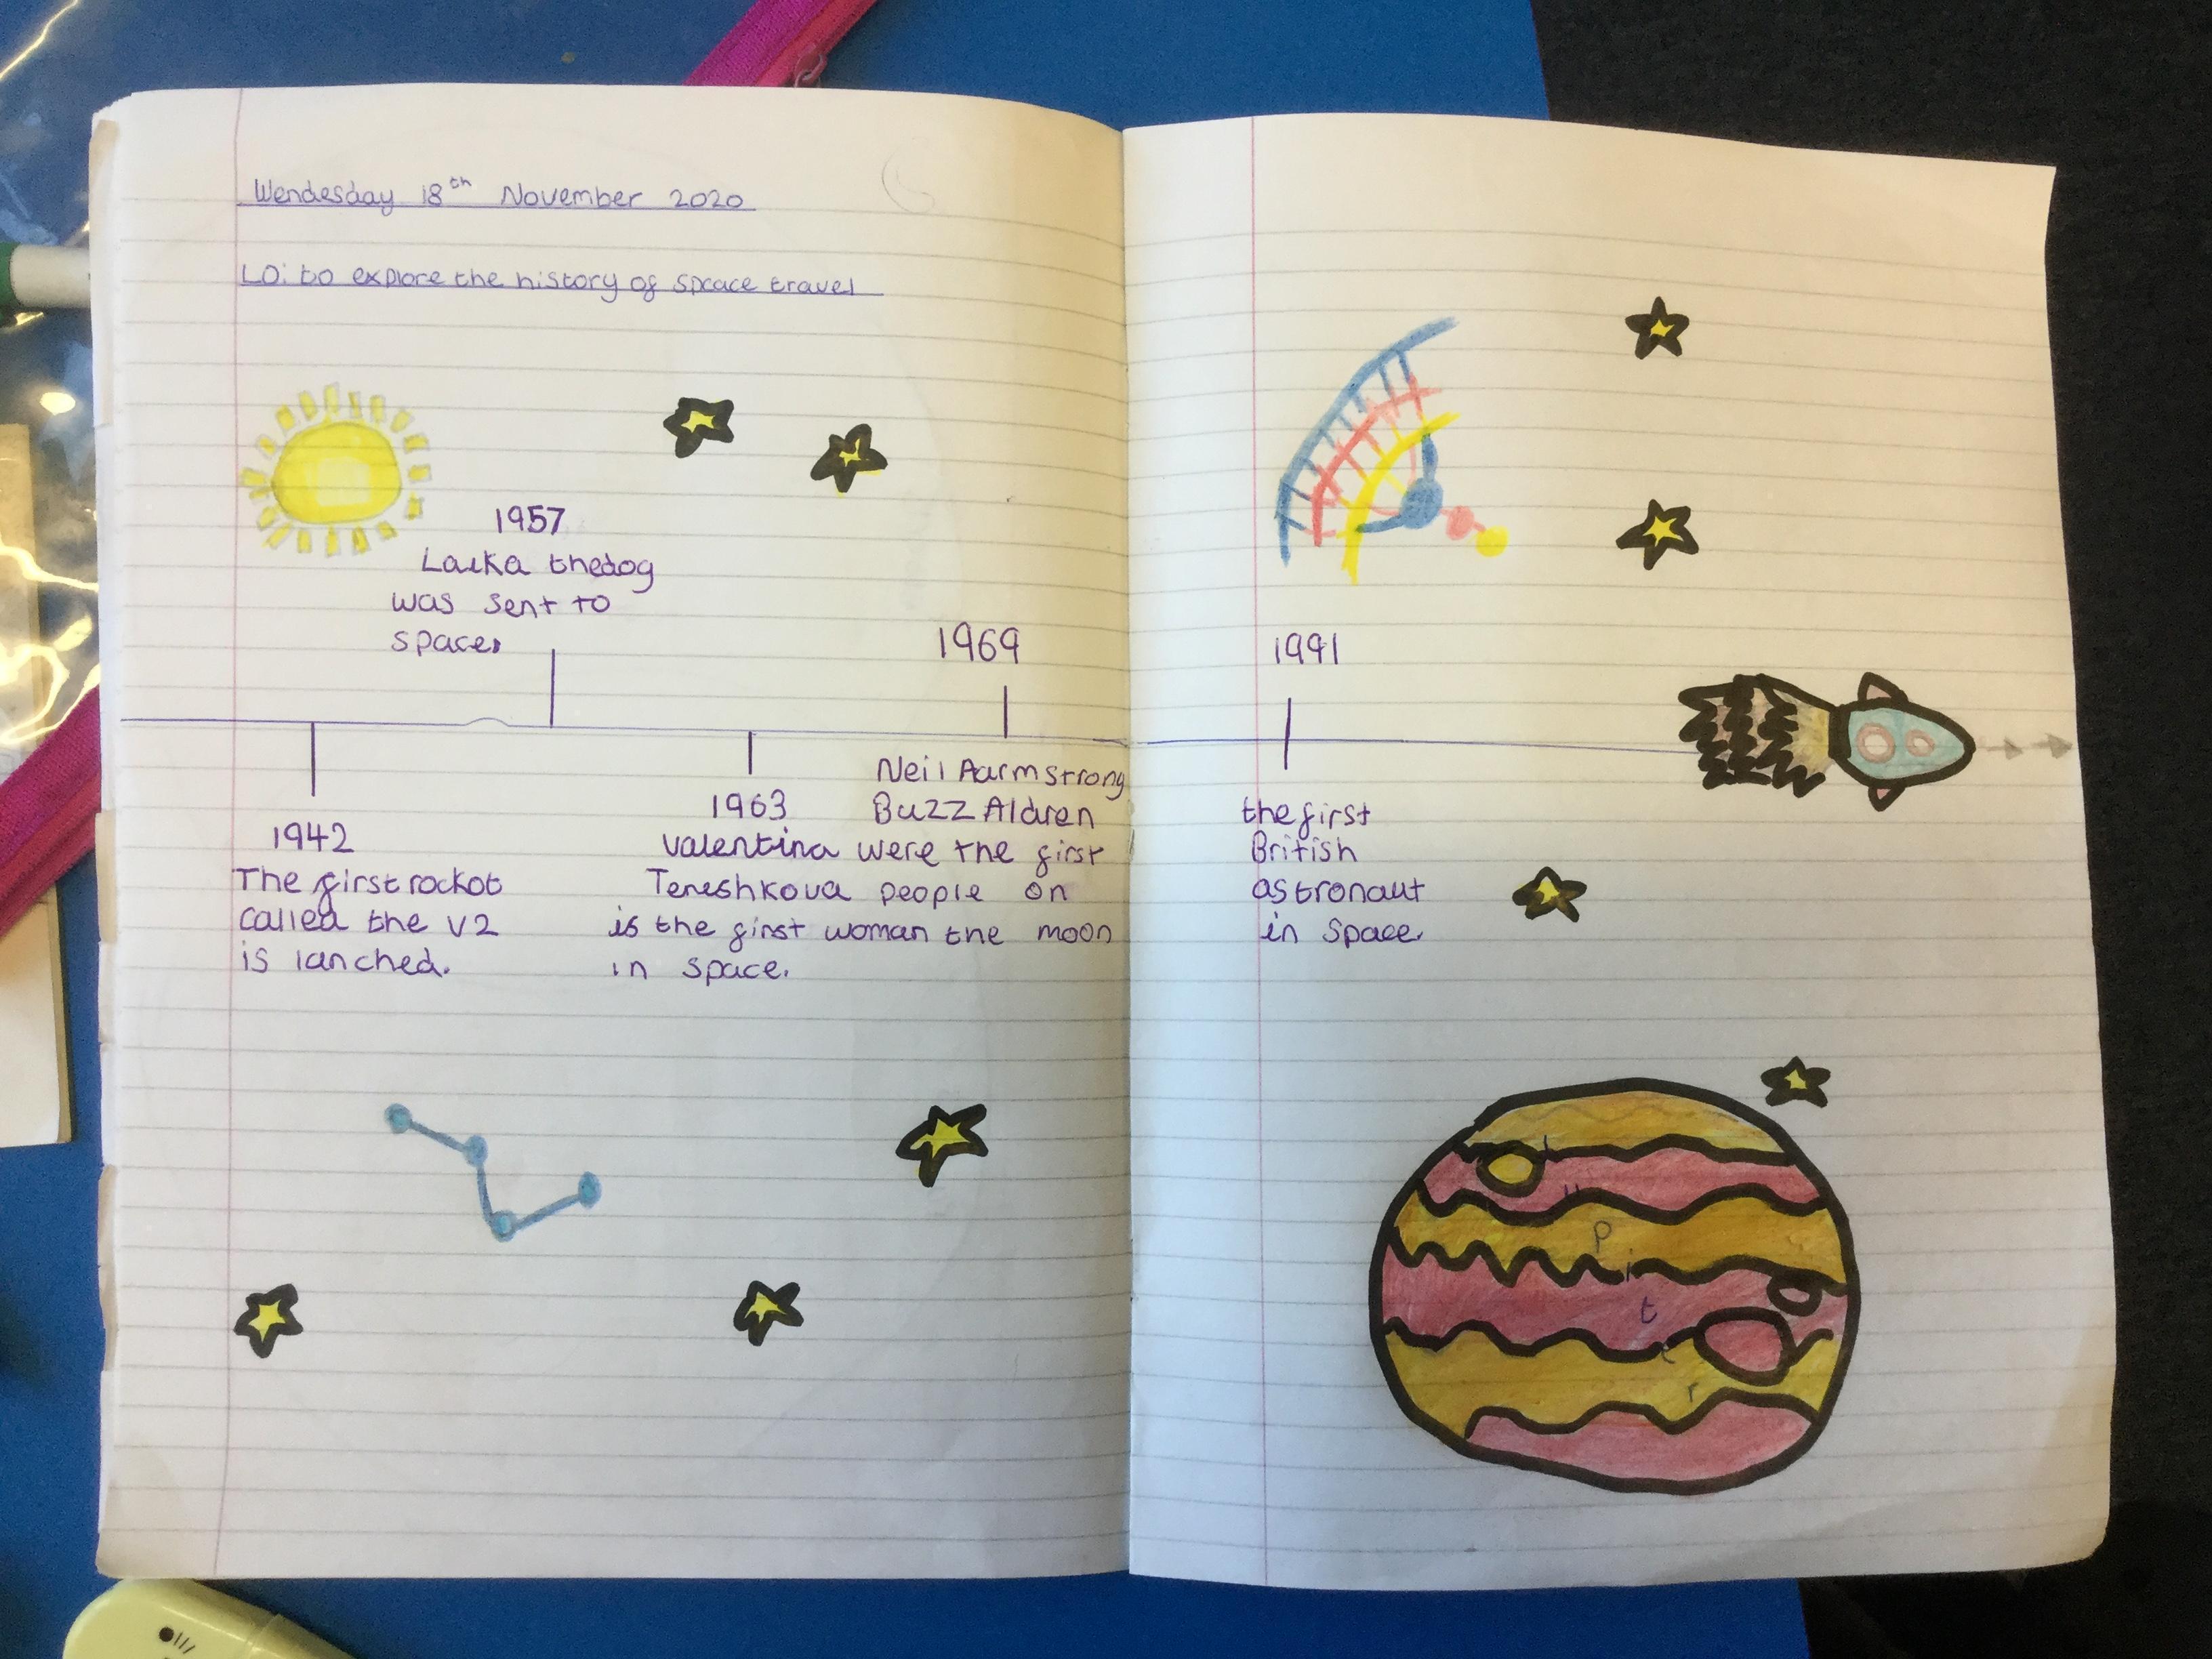 Wendesday 18th November 2020
LO: to explore the history of spcace travel
1957
Laika thedog
was sent to
space.
1942
The first rockot
called the V2
is lanched.
1963
Valentina
Tereshkova
is the first woman
in space.
1969
Neil Aarmstrong
Buzz Aldren
were the first
people on
the moon
1991
the first
British
astronaut
in space.
J
u
p
i
t
e
r